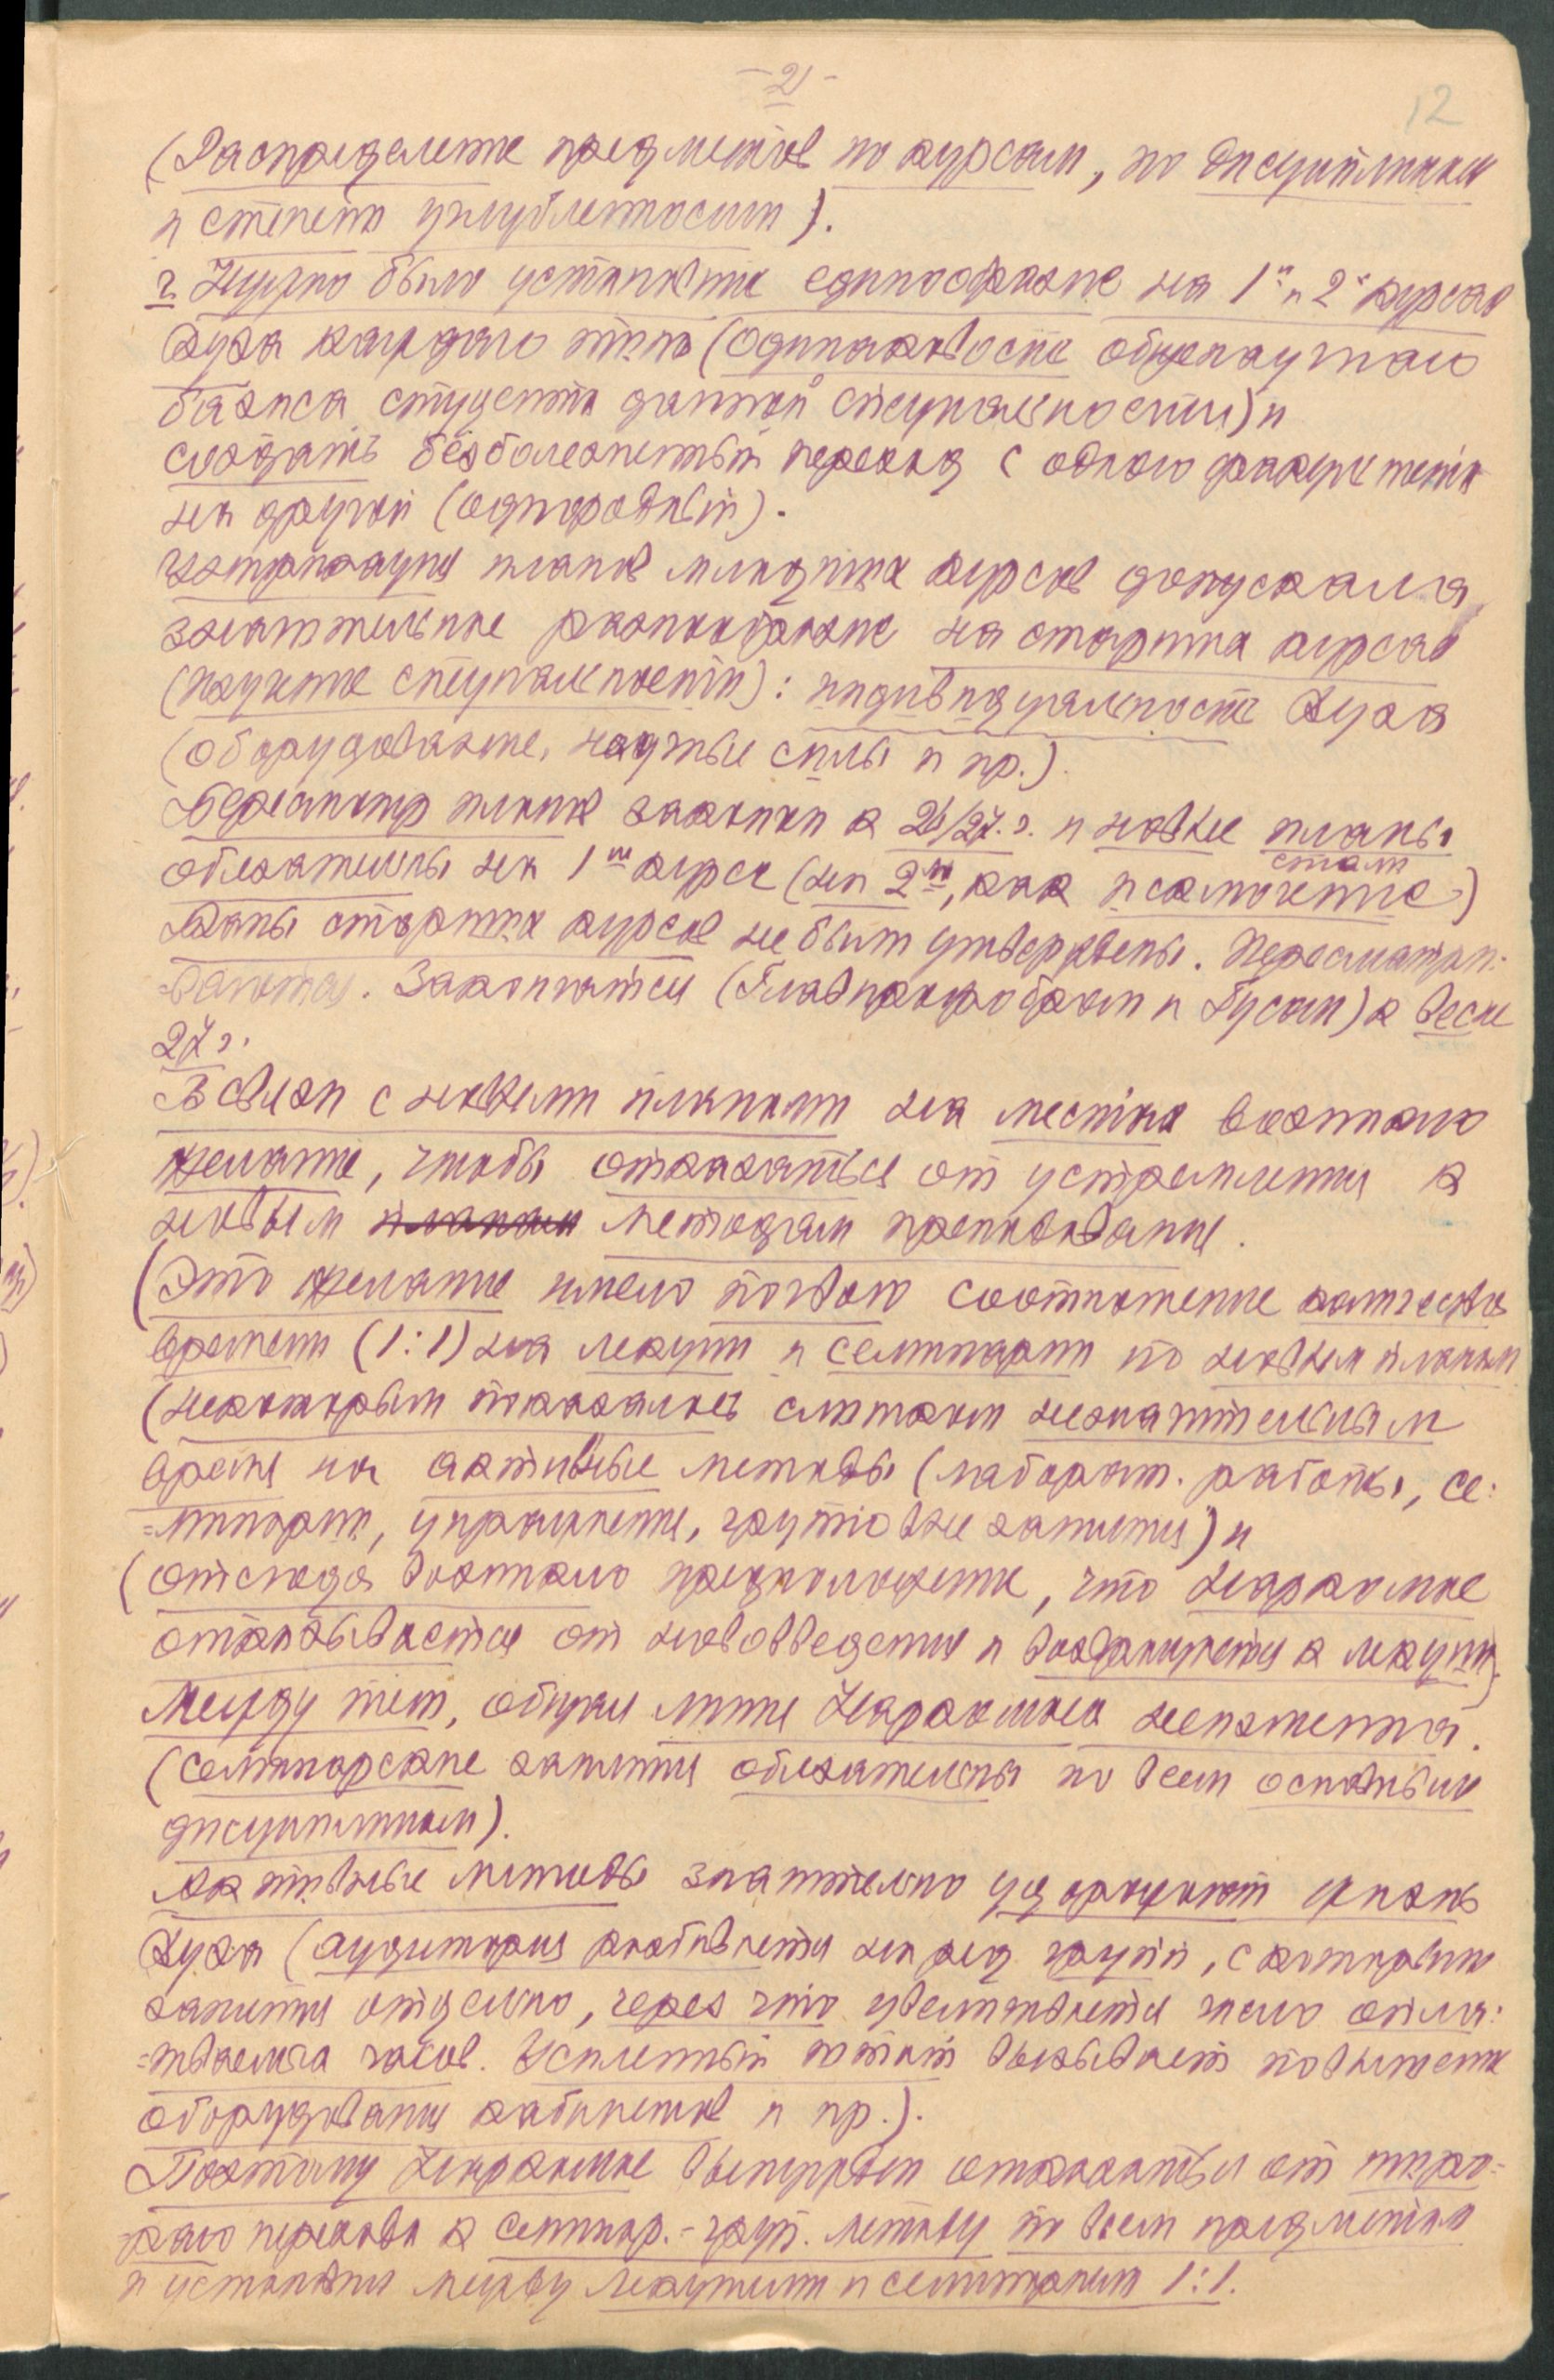 -2-
12
(Распределение предметов по курсам, по дисциплинам
и степени углубленности).
2. Нужно было установить единообразие на 1м и 2м курсах
Вуза каждого типа (одинаковость общенаучного
базиса студента данной специальности) и
создать безболезненный переход с одного факультета
на другой (однородный).
Унификация планов младших курсов допускала
значительное разнообразие на старших курсах
(изучение специальности): индивидуальность Вуза
(оборудование, научные силы и пр.).
Пересмотр планов закончен к 26/27 г. и новые планы
обязательны на 1м курсе (на 2м, как исключение)
Планы старших курсов не были утверждены. Пересматри-
=ваются. Закончатся (Главпрофобром и Гусом) к весне
27 г.
В связи с новыми планами на местах возникло
желание, чтобы отказаться от устремления к
новым планам методам преподавания.
(Это желание имело поводом соотношение количества
времени (1:1) на лекции и семинарии по новым планам
(некоторым показалось слишком незначительным
время на активные методы (лаборат. работы, се=
=минарии, упражнения, групповые занятия) и
(отсюда возникло предположение, что Наркомпрос
отказывается от нововведения и возвращается к лекции)
Между тем, общая линия Наркомпроса неизменна.
(Семинарские занятия обязательны по всем основным
дисциплинам).
Активные методы значительно удорожают жизнь
Вуза (аудитория разбивается на ряд групп, с которыми
занятия отдельно, через что увеличивается число опла=
=чиваемых часов. Усиленный темп вызывает повышение
оборудования кабинетов и пр.).
Поэтому Наркомпрос вынужден отказаться от широ=
=кого перехода к семинар.-груп. методу по всем предметам
и установил между лекциями и семинарием 1:1.